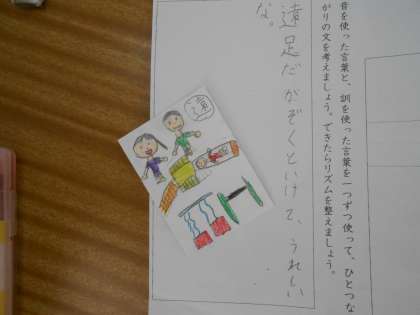 音を使った言葉と、訓を使った言葉を一つずつ使って、ひとつな
がりの文を考えましょう。できたらリズムを整えましょう。
遠足だかぞくといけて、うれしい
な。
遠